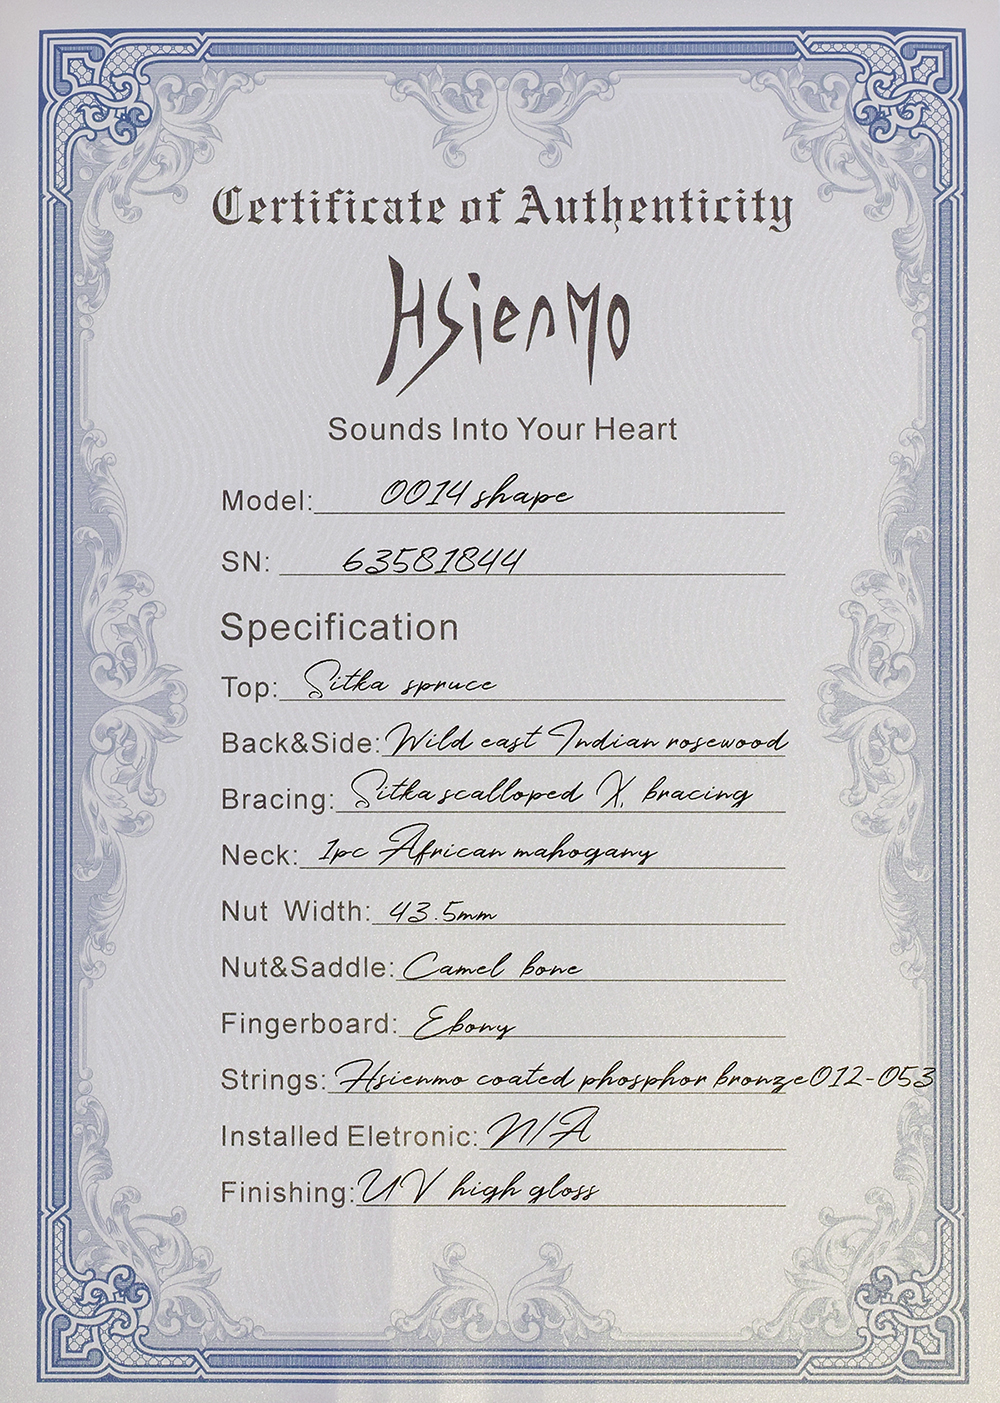 Certificate of Authenticity
Hsienmo
Sounds Into Your Heart
Model: 0014 shape
SN: 63581844
Specification
Top: Sitka spruce
Back&Side: Wild east Indian rosewood
Bracing: Sitka scalloped X bracing
Neck: 1pc African mahogany
Nut Width: 43.5mm
Nut&Saddle: Camel bone
Fingerboard: Ebony
Strings: Hsienmo coated phosphor bronze 012-053
Installed Eletronic: N/A
Finishing: UV high gloss